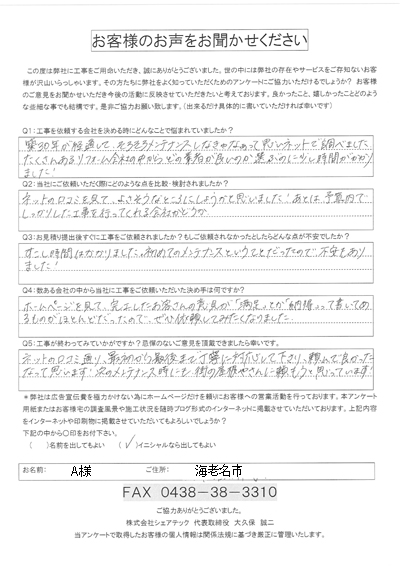 お客様のお声をお聞かせください
この度は弊社に工事をご用命いただき、誠にありがとうございました。世の中には弊社の存在やサービスをご存知ないお客
様が沢山いらっしゃいます。その方たちに弊社をよく知っていただくためのアンケートにご協力いただけるでしょうか? お客様
のご意見をお聞かせいただき今後の活動に反映させていただきたいと考えております。良かったこと、嬉しかったことどのよう
な些細な事でも結構です。是非ご協力お願い致します。(出来るだけ具体的に書いていただければ幸いです)
Q1:工事を依頼する会社を決める時にどんなことで悩まれていましたか?
築30年が経過して、そろそろメンテナンスしなきゃなぁって思いネットで調べました
たくさんあるリフォーム会社の中から、どの業者が良いのか選ぶのに少し時間がかかり
ました!
Q2:当社にご依頼いただく際にどのような点を比較・検討されましたか?
ネットの口コミを見て、よさそうなところにしようかと思いました!あとは予算内で
しっかりした工事を行ってくれる会社かどうか
Q3:お見積り提出後すぐに工事をご依頼されましたか?もしご依頼されなかったとしたらどんな点が不安でしたか?
すこし時間はかかりました。初めてのメンテナンスということだったので、不安もあり
ました!
Q4:数ある会社の中から当社に工事をご依頼いただいた決め手は何ですか?
ホームページを見て、完工したお客さんの意見が「満足」とか「納得」って書いてあ
るものがほとんどだったので、ぜひ依頼してみたくなりました
Q5:工事が終わってみていかがですか?忌憚のないご意見を頂戴できましたら幸いです。
ネットの口コミ通り、最初から最後まで丁寧に対応して下さり、頼んで良かった
なって思います!次のメンテナンス時にも、街の屋根やさんに頼もうと思っています!
*弊社は広告宣伝費を極力かけない為にホームページだけを頼りにお客様への営業活動を行っております。本アンケート
用紙またはお客様宅の調査風景や施工状況を随時ブログ形式のインターネットに掲載させていただいております。上記内容
をインターネットや印刷物に掲載させていただいてもよろしいでしょうか?
下記の中から○印をお付下さい。
( )名前を出してもよい (✓)イニシャルなら出してもよい
お名前: A様 ご住所: 海老名市
FAX 0438-38-3310
ご協力ありがとうございました。
株式会社シェアテック 代表取締役 大久保 誠二
当アンケートで取得したお客様の個人情報は関係法規に基づき厳正に管理いたします。